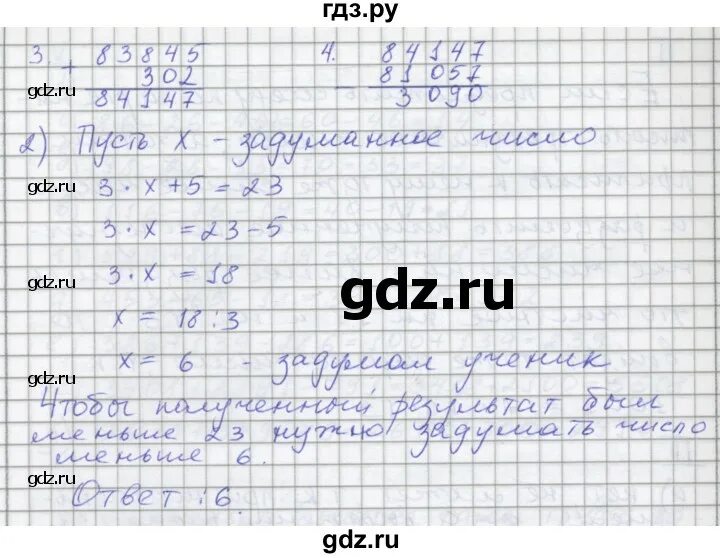 гдз.ру
3. + 83845 4. - 84147
302 81057
84147 3090
gdz.ru gdz.ru
2) Пусть x - задуманное число
gdz.ru 3 · x + 5 = 23 gdz.ru
3 · x = 23 - 5
gdz.ru 3 · x = 18 gdz.ru
gdz.ru
x = 18 : 3
x = 6 - задумал ученик
gdz.ru gdz.ru
Чтобы полученный результат был
меньше 23 нужно задумать число
меньше 6.
gdz.ru gdz.ru
Ответ : 6.
gdz.ru